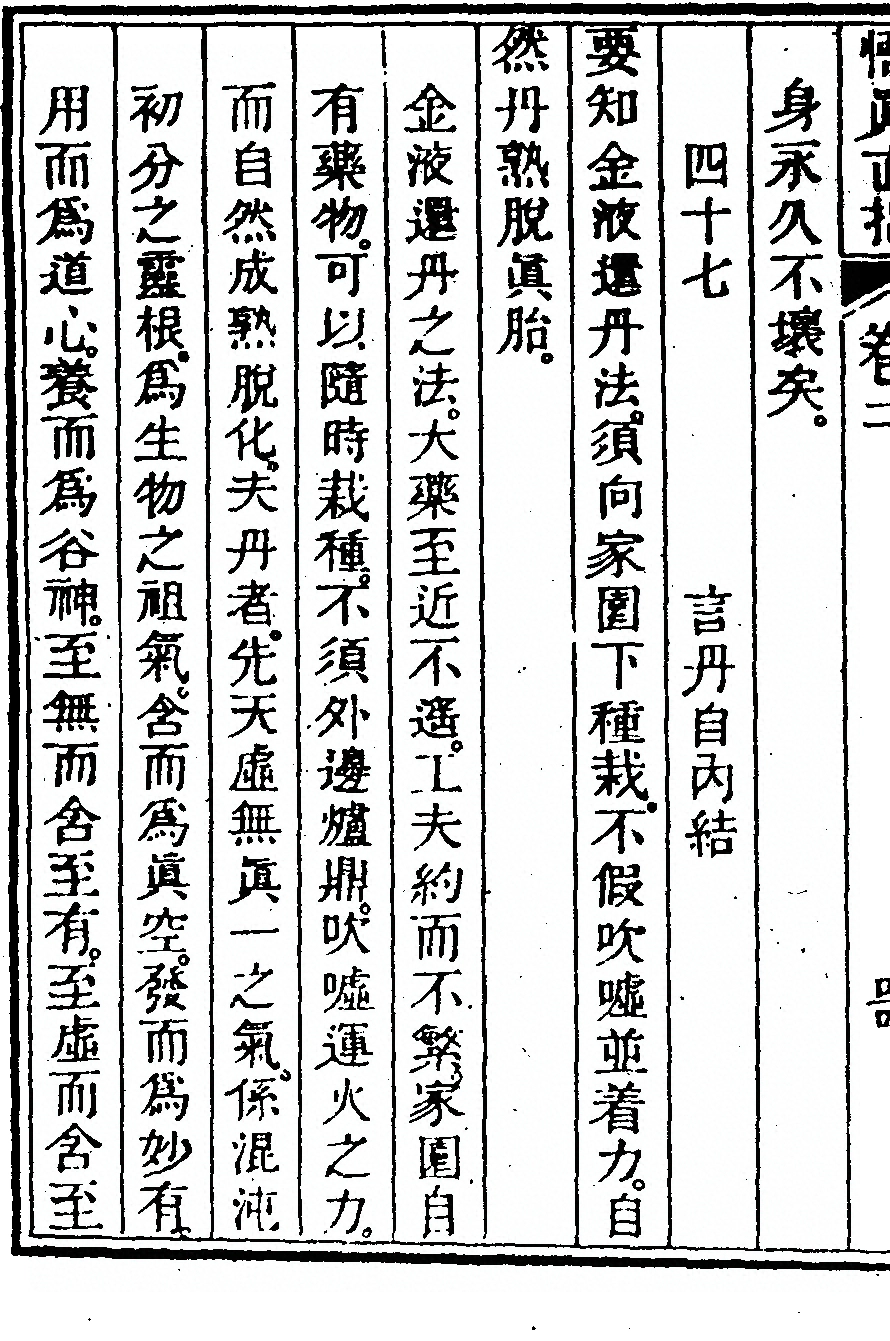 悟真直指 卷二
身永久不壞矣。
四十七 言丹自內結
要知金液還丹法。須向家園下種栽。不假吹噓並着力。自
然丹熟脫眞胎。
金液還丹之法。大藥至近不遥。工夫約而不繁。家園自
有藥物。可以隨時栽種。不須外邊爐鼎。吹噓運火之力。
而自然成熟脫化。夫丹者。先天虛無眞一之氣。係混沌
初分之靈根。爲生物之祖氣。含而爲眞空。發而爲妙有。
用而爲道心。養而爲谷神。至無而含至有。至虛而含至